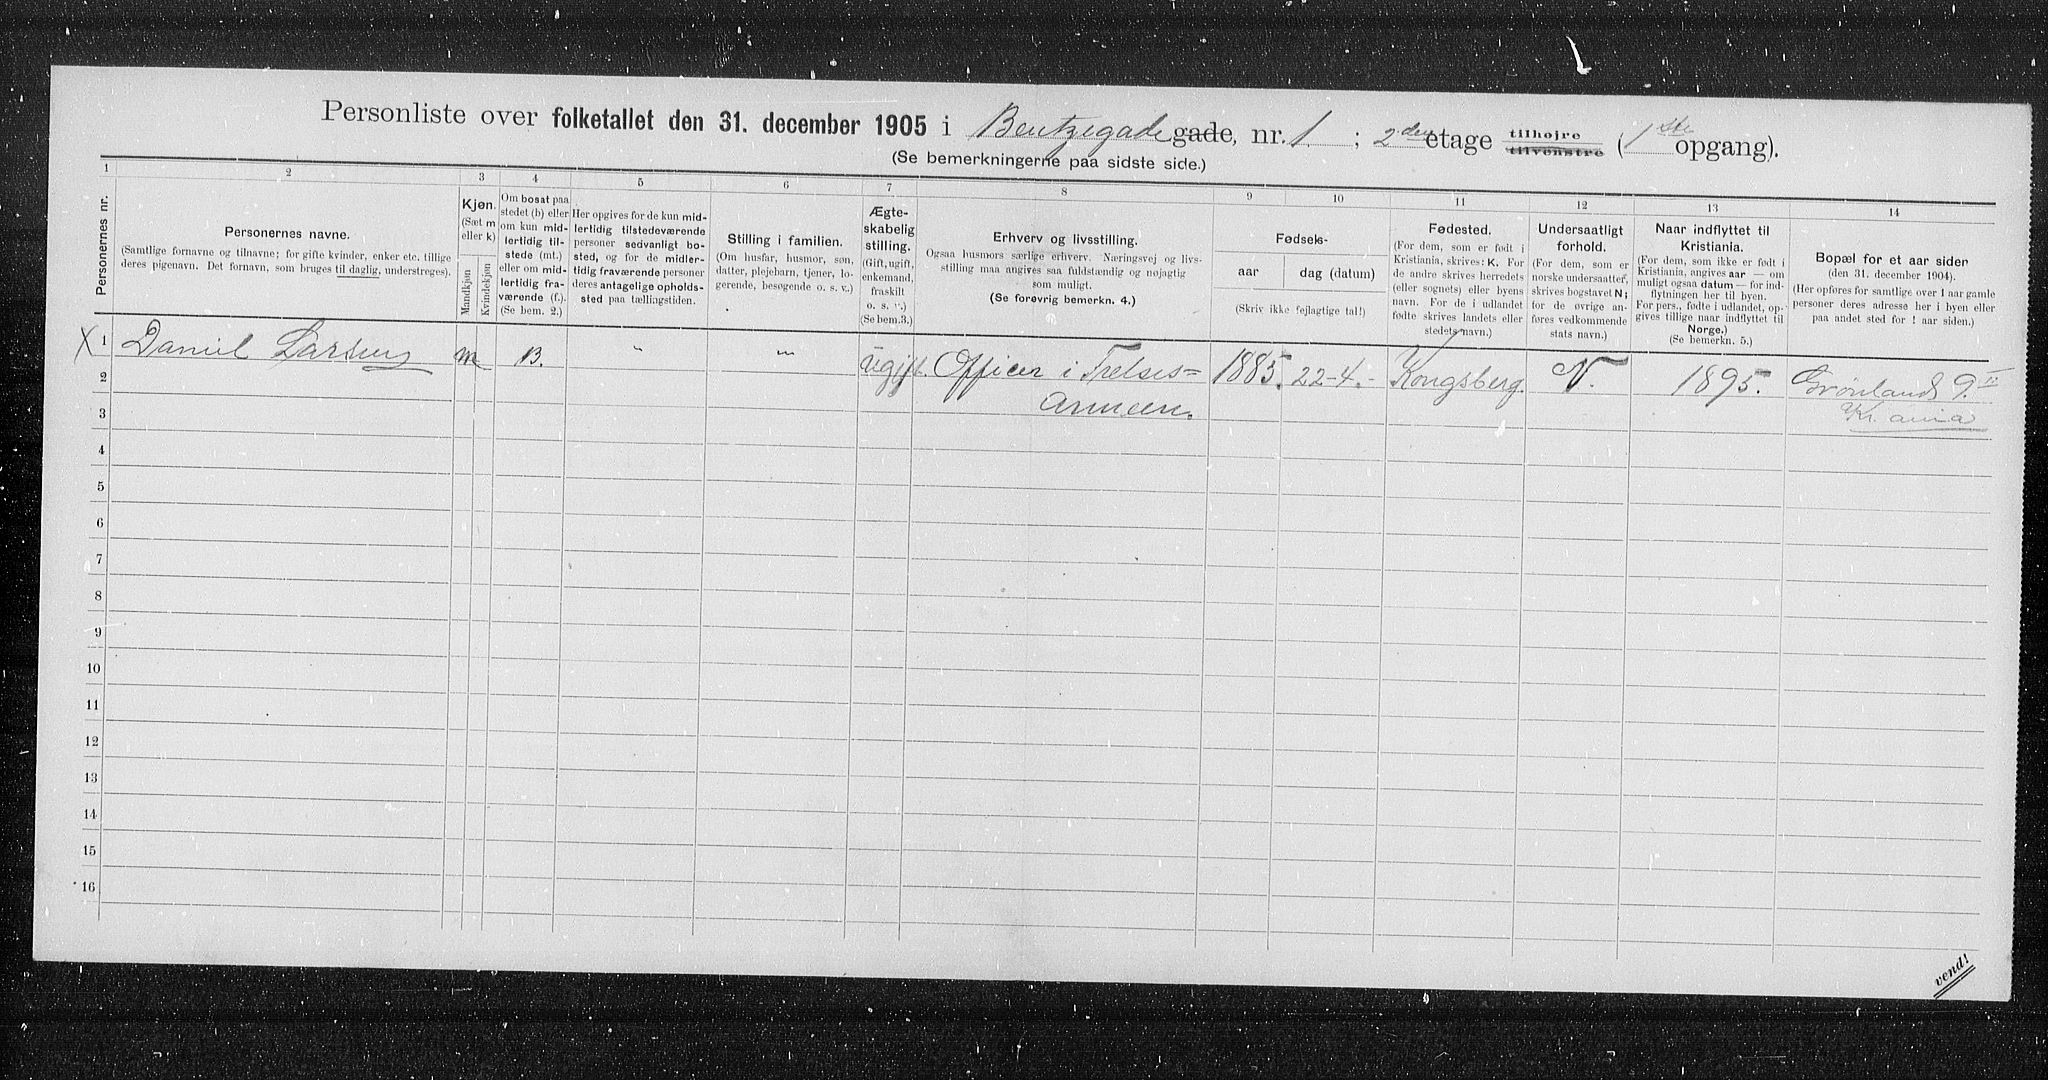 Personliste over folketallet den 31. december 1905 i Bentzegade gade, nr. 1. ; 2den etage tilhøjre tilvenstre ( 1ste opgang).
(Se bemerkningerne paa sidste side.)
1 2 3 4 5 6 7 8 9 10 11 12 13 14
Personernes nr.
Personernes navne.
(Samtlige fornavne og tilnavne; for gifte kvinder, enker etc. tillige
deres pigenavn. Det fornavn, som bruges til daglig, understreges).
Kjøn.
(Sæt m
eller k)
Mandkjøn
Kvindekjøn
Om bosat paa
stedet (b) eller
om kun mid-
lertidig til-
stede (mt.)
eller om mid-
lertidig fra-
værende (f.).
(Se bem. 2.)
Her opgives for de kun mid-
lertidig tilstedeværende
personer sedvanligt bo-
sted, og for de midler-
tidig fraværende personer
deres antagelige opholds-
sted paa tællingstiden.
Stilling i familien.
(Om husfar, husmor, søn,
datter, plejebarn, tjener, lo-
gerende, besøgende o. s. v.)
Ægte-
skabelig
stilling.
(Gift, ugift,
enkemand,
fraskilt
o. s. v.)
(Se bem.3.)
Erhverv og livsstilling.
Ogsaa husmors særlige erhverv. Næringsvej og livs-
stilling maa angives saa fuldstændig og nøjagtig
som muligt.
(Se forøvrig bemerkn. 4.)
Fødsels-
aar dag (datum)
(Skriv ikke fejlagtige tal!)
Fødested.
(For dem, som er født i
Kristiania, skrives: K. For
de andre skrives herredets
(eller sognets) eller byens
navn. For de i udlandet
fødte skrives landets eller
stedets navn.)
Undersaatligt
forhold.
(For dem, som er
norske undersaatter,
skrives bogstavet N;
for de øvrige an-
føres vedkommende
stats navn.)
Naar indflyttet til
Kristiania.
(For dem, som ikke er født i
Kristiania, angives aar — om
muligt ogsaa datum — for ind-
flytningen her til byen.
For pers., fødte i udlandet, op-
gives tillige naar indflyttet til
Norge.)
(Se bemerkn. 5.)
Bopæl for et aar siden
(den 31. december 1904).
(Her opføres for samtlige over 1 aar gamle
personer deres adresse her i byen eller
paa andet sted for 1 aar siden.)
X 1 Daniel Larsen m B. " " ugift. Officer i Frelses= 1885. 22-4.- Kongsberg N. 1895. Grønland 9. II
Armeen. Kr.ania
2
3
4
5
6
7
8
9
10
11
12
13
14
15
16
vend!